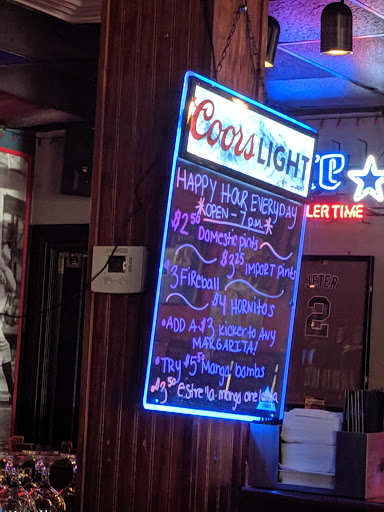 Coors LIGHT
Coors LIGHT
HAPPY HOUR EVERYDAY
*OPEN - 7 p.m.*
$2.50 Domestic pints
$3.25 IMPORT pints
$3 FireBall
$4 HORNITOS
• ADD A $3 kicker to ANY
MARGARITA!
• TRY $5.50 Manga bombs
• $3.50 Estrella
LER TIME
JETER
2